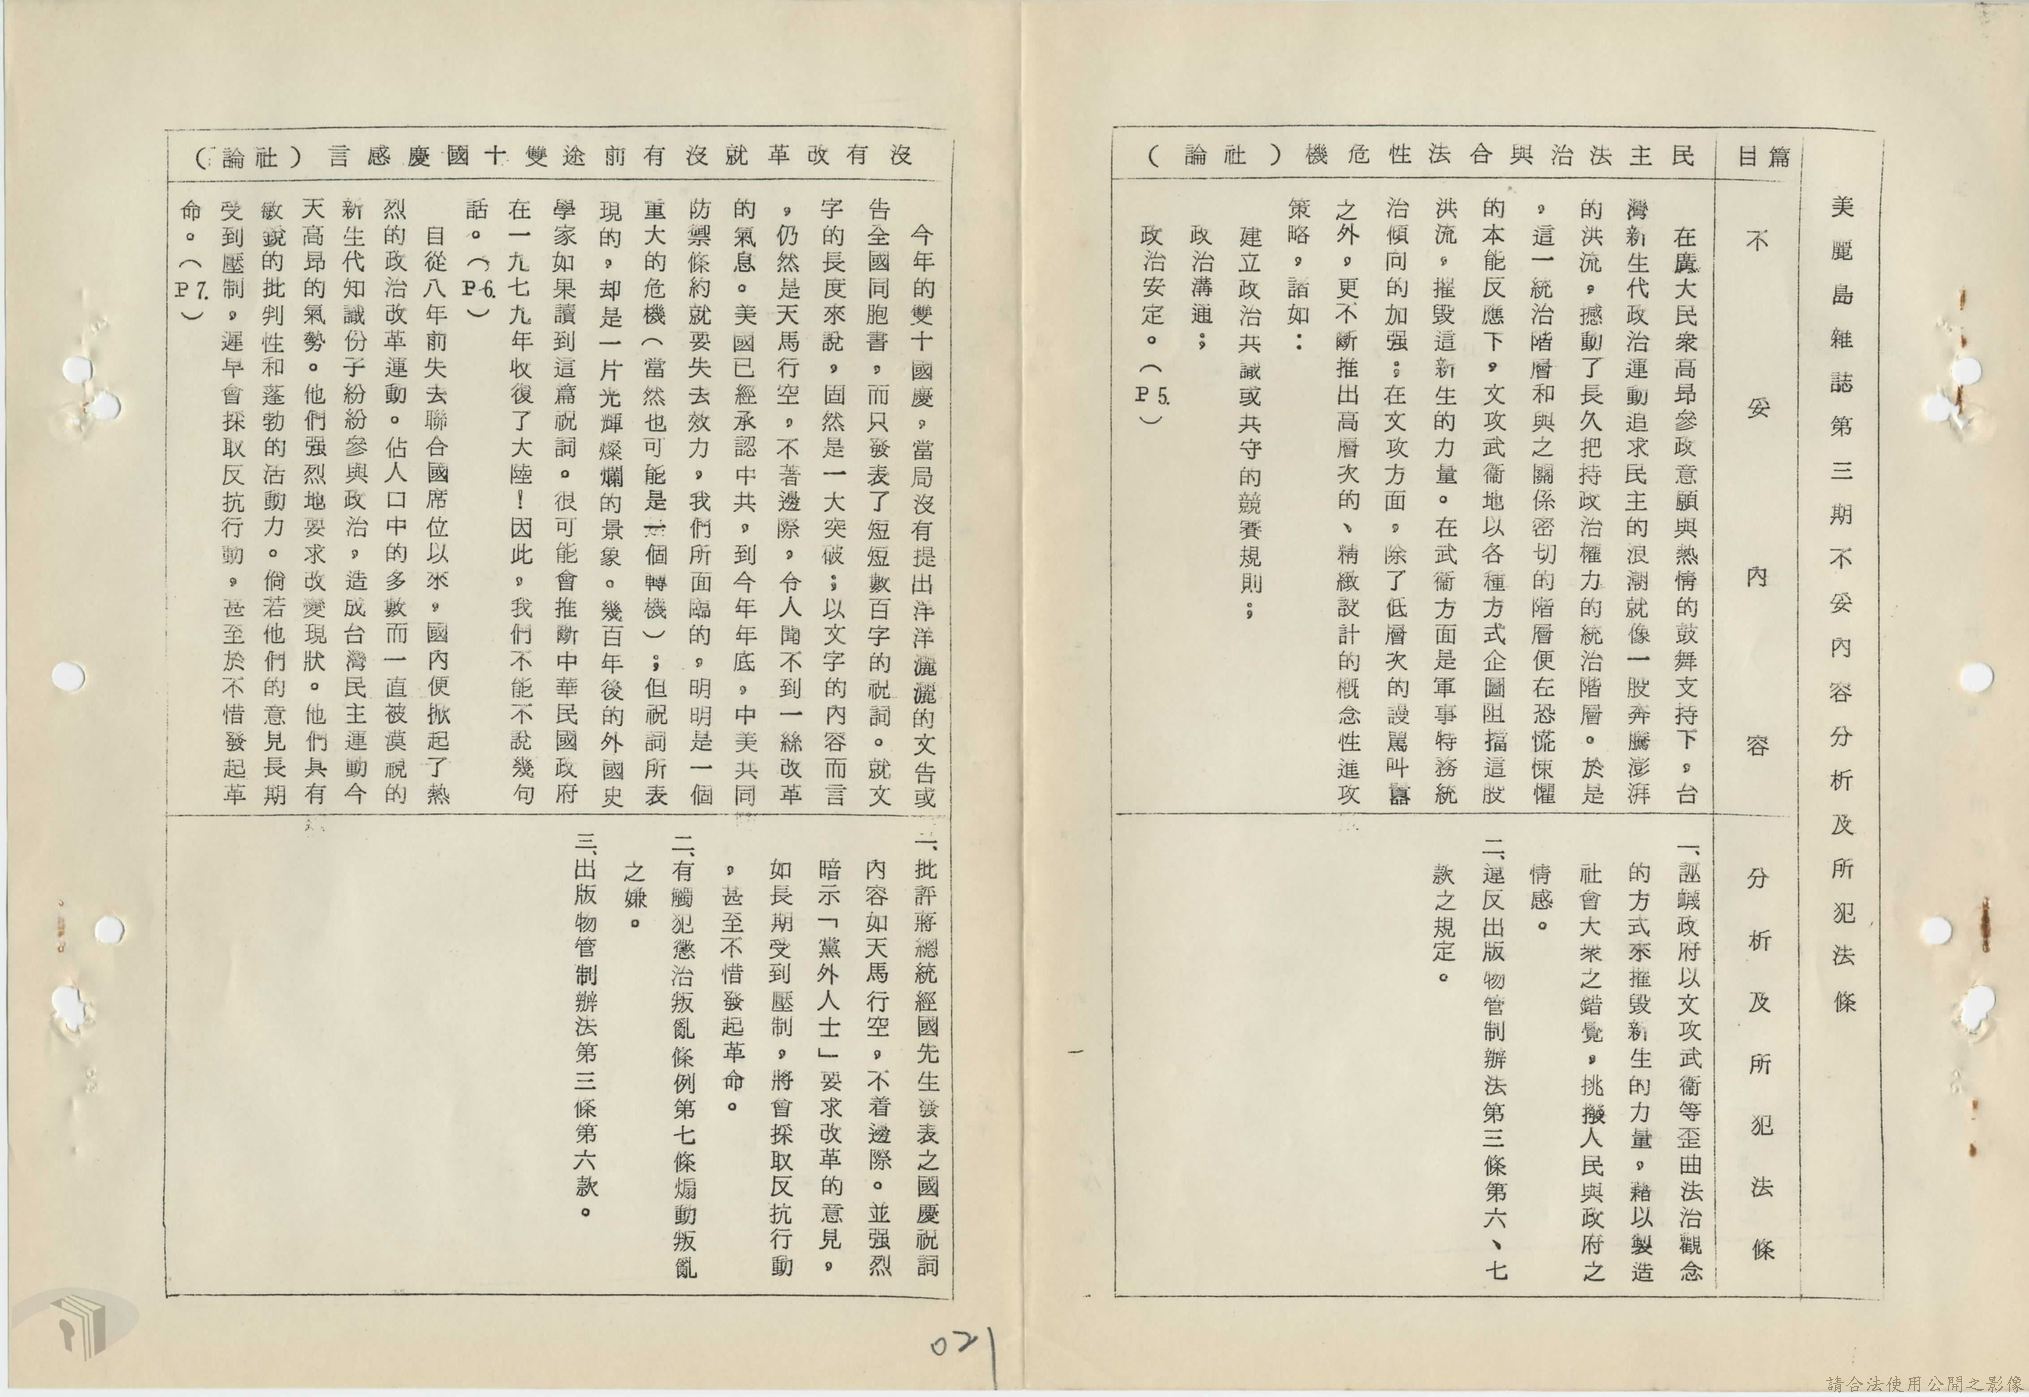 美麗島雜誌第三期不妥內容分析及所犯法條
篇目
不妥內容
分析及所犯法條
民主法治與合法性危機（社論）
在廣大民衆高昂參政意願與熱情的鼓舞支持下，台
灣新生代政治運動追求民主的浪潮就像一股奔騰澎湃
的洪流，撼動了長久把持政治權力的統治階層。於是
，這一統治階層和與之關係密切的階層便在恐慌悚懼
的本能反應下，文攻武衞地以各種方式企圖阻擋這股
洪流，摧毀這新生的力量。在武衞方面是軍事特務統
治傾向的加强；在文攻方面，除了低層次的謾罵叫囂
之外，更不斷推出高層次的、精緻設計的概念性進攻
策略，諸如：
建立政治共識或共守的競賽規則；
政治溝通；
政治安定。（P5.）
一、誣衊政府以文攻武衞等歪曲法治觀念
的方式來摧毀新生的力量，藉以製造
社會大衆之錯覺，挑撥人民與政府之
情感。
二、違反出版物管制辦法第三條第六、七
款之規定。
沒有改革就沒有前途雙十國慶感言（社論）
今年的雙十國慶，當局沒有提出洋洋灑灑的文告或
告全國同胞書，而只發表了短短數百字的祝詞。就文
字的長度來說，固然是一大突破；以文字的內容而言
，仍然是天馬行空，不著邊際，令人聞不到一絲改革
的氣息。美國已經承認中共，到今年年底，中美共同
防禦條約就要失去效力，我們所面臨的，明明是一個
重大的危機（當然也可能是一個轉機）；但祝詞所表
現的，却是一片光輝燦爛的景象。幾百年後的外國史
學家如果讀到這篇祝詞。很可能會推斷中華民國政府
在一九七九年收復了大陸！因此，我們不能不說幾句
話。（P6.）
自從八年前失去聯合國席位以來，國內便掀起了熱
烈的政治改革運動。佔人口中的多數而一直被漠視的
新生代知識份子紛紛參與政治，造成台灣民主運動今
天高昂的氣勢。他們强烈地要求改變現狀。他們具有
敏銳的批判性和蓬勃的活動力。倘若他們的意見長期
受到壓制，遲早會採取反抗行動，甚至於不惜發起革
命。（P7.）
一、批評蔣總統經國先生發表之國慶祝詞
內容如天馬行空，不着邊際。並强烈
暗示「黨外人士」要求改革的意見，
如長期受到壓制，將會採取反抗行動
，甚至不惜發起革命。
二、有觸犯懲治叛亂條例第七條煽動叛亂
之嫌。
三、出版物管制辦法第三條第六款。
021
請合法使用公開之影像